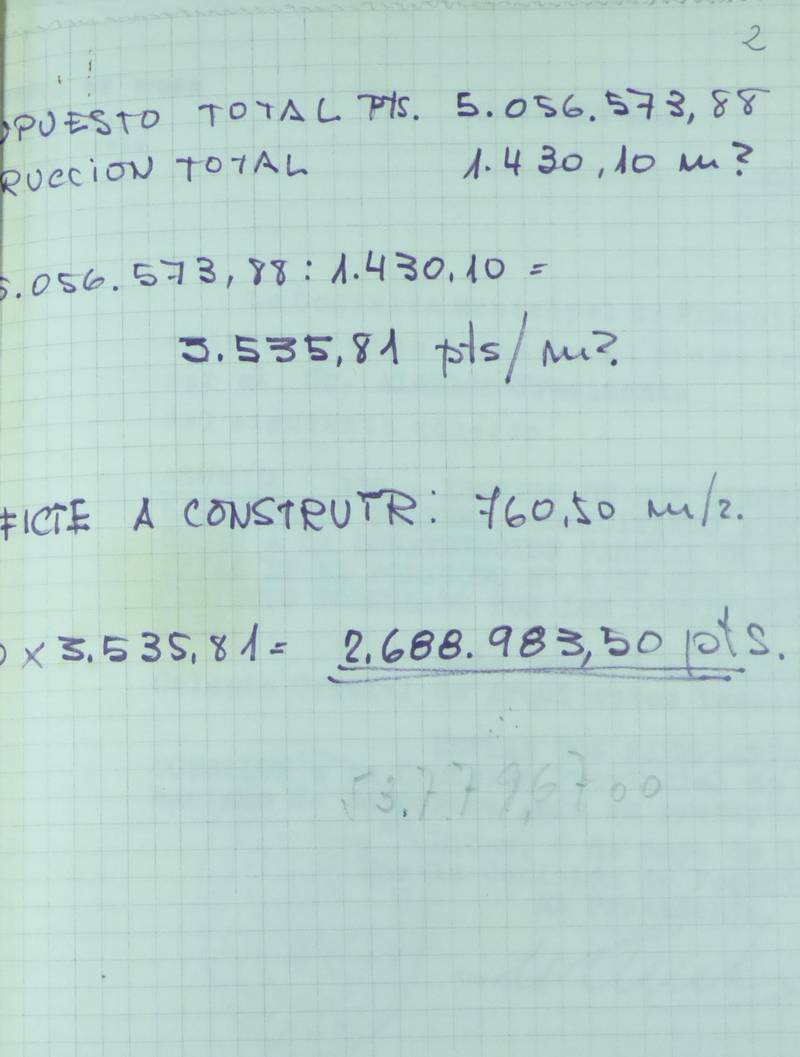 2
OPUESTO TOTAL Pts. 5.056.573,88
RUCCION TOTAL 1.430,10 m2
5.056.573,88 : 1.430,10 =
3.535,81 pts/m2.
FICIE A CONSTRUIR: 760,50 m/2.
0 x 3.535,81 = 2.688.983,50 pts.
53.779,6700